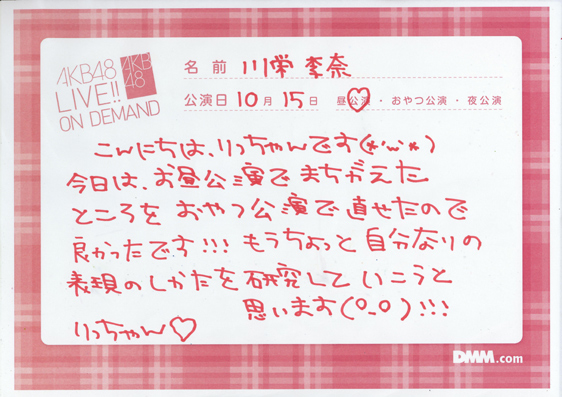 AKB48
LIVE!!
ON DEMAND
AKB
48
名前 川栄李奈
公演日 10月 15日 昼公演・おやつ公演・夜公演
こんにちは、りっちゃんです(*'ω'*)
今日は、お昼公演でまちがえた
ところをおやつ公演で直せたので
良かったです!!! もうちょっと自分なりの
表現のしかたを研究していこうと
思います(º_º)!!!
りっちゃん♡
DMM.com